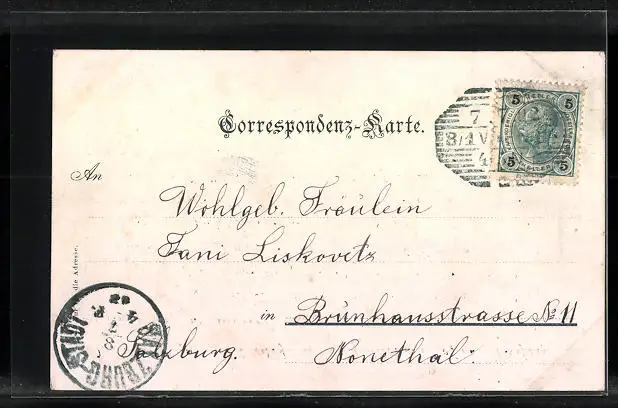 Correspondenz-Karte.
5 5
7
8/1 V
4
5 5
An
Wohlgeb. Fräulein
Fani Liskovetz
die Adresse.
in Brunhausstrasse No 11
Salzburg. Nonethal.
SALZBURG-STADT
4 F